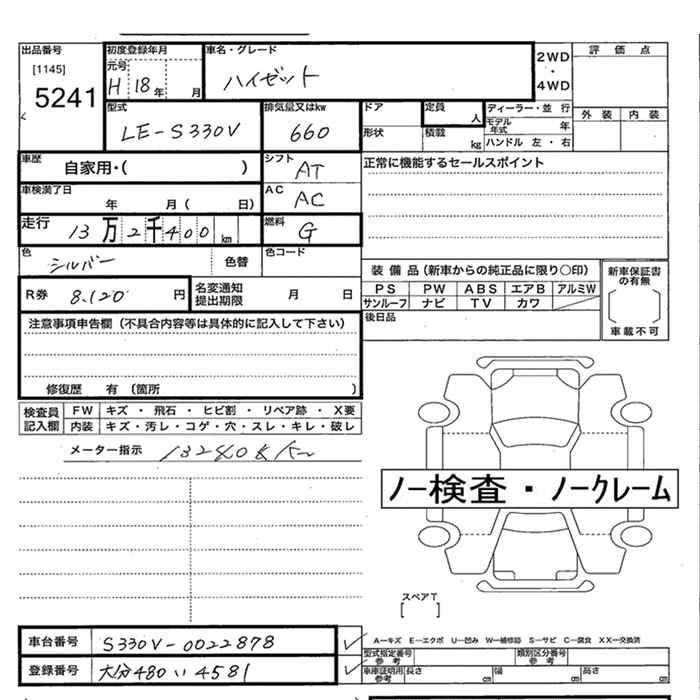 出品番号 初度登録年月 車名・グレード 2WD 評価点
[1145] 元号 ハイゼット ・
5241 H 18年 月 4WD
型式 排気量又はkw ドア 定員 人 ディーラー・並行 外装 内装
LE-S330V 660 形状 積載 kg モデル年式 年
ハンドル 左・右
車歴 自家用・( ) シフト AT 正常に機能するセールスポイント
車検満了日 年 月( 日) AC AC
走行 13万2千400km 燃料 G
色 シルバー 色替 色コード
装備品(新車からの純正品に限り○印) 新車保証書の有無
R券 8,120円 名変通知提出期限 月 日 PS PW ABS エアB アルミW
サンルーフ ナビ TV カワ 車載不可
注意事項申告欄(不具合内容等は具体的に記入して下さい) 後日品
修復歴 有(箇所 )
検査員記入欄 FW キズ・飛石・ヒビ割・リペア跡・X要
内装 キズ・汚レ・コゲ・穴・スレ・キレ・破レ
メーター指示 132408km
ノー検査・ノークレーム
スペアT
[ ]
車台番号 S330V-0022878 A―キズ E―エクボ U―凹み W―補修跡 S―サビ C―腐食 XX―交換済
型式指定番号 参考 類別区分番号 参考
登録番号 大分480い4581 車庫証明用参考 長さ cm 幅 cm 高さ cm